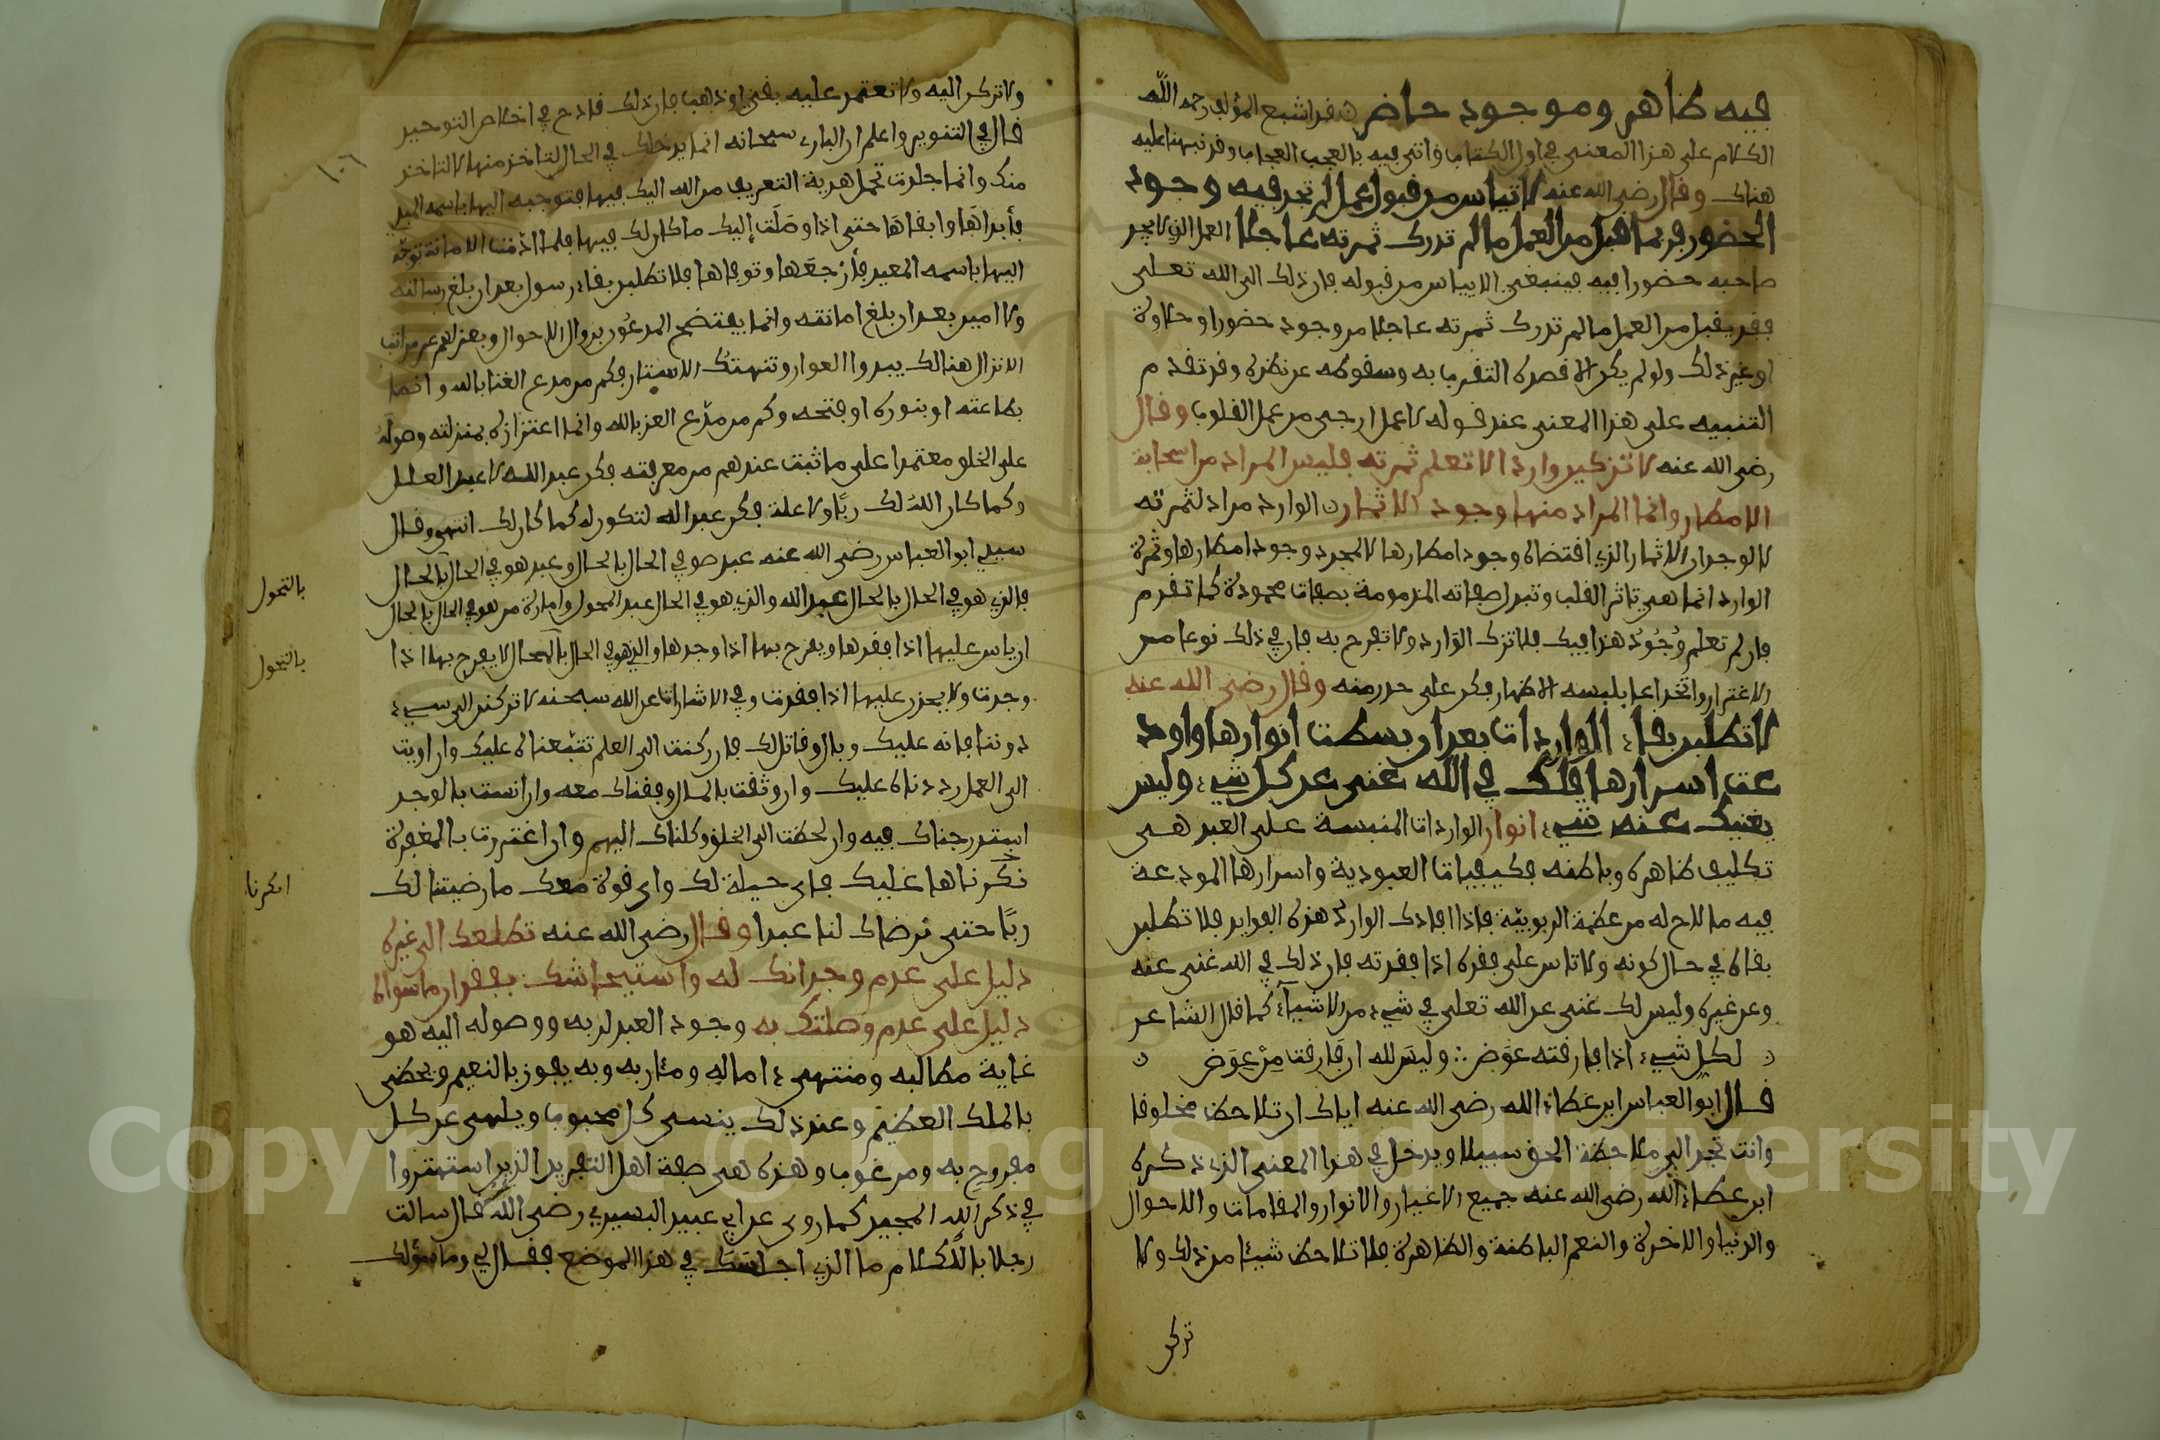 فيه ظاهر وموجود حاضر قد اشبع المؤلف رحمه الله
الكلام على هذا المعنى في اول الكتاب واتى فيه بالعجب العجاب وقد نبهنا عليه
هناك وقال رضى الله عنه لا تياس من قبول عمل لم تجد فيه وجود
الحضور فربما قبل من العمل ما لم تدرك ثمرته عاجلا العمل الذي لا يجد
صاحبه حضورا فيه فينبغي الا يياس من قبوله فان ذلك الى الله تعلى
فقد يقبل من العمل ما لم تدرك ثمرته عاجلا من وجود حضور او حلاوة
او غير ذلك ولو لم يكن الا قصده التقرب به وسقوطه عن نظره وقد تقدم
التنبيه على هذا المعنى عند قوله لا عمل ارجى من عمل القلوب وقال
رضى الله عنه لا تزكين واردا لا تعلم ثمرته فليس المراد من السحابة
الامطار وانما المراد منها وجود الاثمار الوارد مراد لثمرته
لا لوجدان الاثمار الذي اقتضاه وجود امطارها لا لمجرد وجود امطارها وثمرة
الوارد انما هي تاثر القلب وتبدل صفاته المذمومة بصفات محمودة كما تقدم
فان لم تعلم وُجُودَ هذا فيك فلا تزك الوارد ولا تفرح به فان في ذلك نوعا من
الاغترار وانخداعا بلبسه الاظهار فكن على حذر منه وقال رضى الله عنه
لا تطلبن بقاء الواردات بعد ان بسطت انوارها واود
عت اسرارها فلك في الله غنى عن كل شيء وليس
يغنيك عنه شيء انوار الواردات المنبسة على العبد هي
تكليف ظاهره وباطنه فكيفيات العبودية واسرارها المودعة
فيه ما لاح له من عظمة الربوبية فاذا افادك الوارد هذه الفوايد فلا تطلبن
بقاه في حال كونه ولا تاس على فقده اذا فقدته فان ذلك في الله غنى عنه
وعن غيره وليس لك غنى عن الله تعلى في شيء من الاشياء كما قال الشاعر
لكل شيء اذا فارقته عوض ∴ وليس لله ان فارقت من عوض
قال ابو العباس ابن عطاء الله رضى الله عنه اياك ان تلاحظ مخلوقا
وانت تجد الى ملاحظة الحق سبيلا ويدخل في هذا المعنى الذي ذكره
ابن عطاء الله رضى الله عنه جميع الاغيار والانوار والمقامات والاحوال
والدنيا والاخرة والنعم الباطنة والظاهرة فلا تلاحظ شيئا من ذلك ولا
تركن
ولا تركن اليه ولا تعتمد عليه بقي او ذهب فان ذلك قادح في اخلاص التوحيد
قال في التنوير واعلم ان البارئ سبحانه انما يدخلك في الحال لتاخذ منها لا لتاخذ
منك وانما جاءت تحمل هدية التعريف من الله اليك فيها فتوجه اليها باسمه المبدئ
فأبدأها وابقاها حتى اذا وصَلَت إليك ما كان لك فيها فلما ادّت الامانة توجّه
اليها باسمه المعيد فأرجعها وتوفاها فلا تطلبن بقاء رسول بعد ان بلغ رسالته
ولا امين بعد ان بلغ امانته وانما يفتضح المدعون بزوال الاحوال وبعزلهم عن مراتب
الانزال هنالك يبدوا العوار وتنهتك الاستار فكم من مدع الغنا بالله وانما
بطاعته او بنوره او فتحه وكم من مدّع العز بالله وانما اعتزازه بمنزلته وصولته
على الخلق معتمدا على ما ثبت عندهم من معرفته فكن عبد الله لا عبد العلل
وكما كان اللهُ لك ربًّا ولا علة فكن عبد الله لتكون له كما كان لك انتهى وقال
سيدي ابو العباس رضى الله عنه عبد هو في الحال بالحال وعبد هو في الحال بالحال
فالذي هو في الحال بالحال عبد الله والذي هو في الحال عبد المحول وامارة من هو في الحال بالحال
ان ياس عليها اذا فقدها ويفرح بها اذا وجدها والذي هو في الحال بالمحال لا يفرح بها اذا
وجدت ولا يحزن عليها اذا فقدت وفي الاشارات عن الله سبحنه لا تركنن الى شيء
دوننا فانه عليك وبال وقاتل لك فان ركنت الى العلم تتبّعناه عليك وان اويت
الى العمل رددناه عليك وان وثقت بالحال وقفناك معه وان انست بالوجد
استدرجناك فيه وان لحظت الى الخلق وكلناك اليهم وان اغتررت بالمعرفة
نكّرناها عليك فاي حيلة لك واي قوة معك ما رضيتنا لك
ربًّا حتى نرضاك لنا عبدا وقال رضى الله عنه تطلعك الى غيره
دليل على عدم وجدانك له واستيحاشك بفقدان ما سواه
دليل على عدم وصلتك به وجود العبد لربه ووصوله اليه هو
غاية مطالبه ومنتهى ءاماله ومئاربه وبه يفوز بالنعيم ويحضى
بالملك العظيم وعند ذلك ينسى كل محبوب ويلهى عن كل
مفروح به ومرغوب وهذه هي صفة اهل التفريد الذين استهتروا
في ذكر الله المجيد كما روى عن ابي عبيد البسري رضى الله قال سالت
رجلا باللكام ما الذي اجلسك في هذا الموضع فقال لي وما سؤلك
١٠٦
بالتحول
بالتحول
انكرنا
Copyright © King Saud University